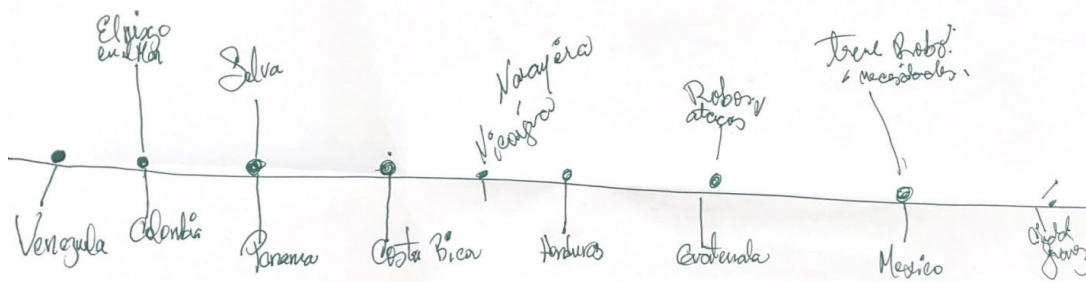 El piso
en el Mar
Selva
Navajera
Nicaragua
Robos y
ataques
tren Robo.
necesidades
Venezuela
Colombia
Panama
Costa Rica
Honduras
Guatemala
Mexico